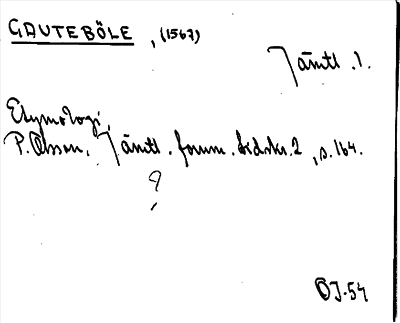 GAUTEBÖLE, (1567)
Jämtl. l.
Etymologi,
P. Olsson, Jämtl. fornm. tidskr. 2, s. 164.
?
OJ-54